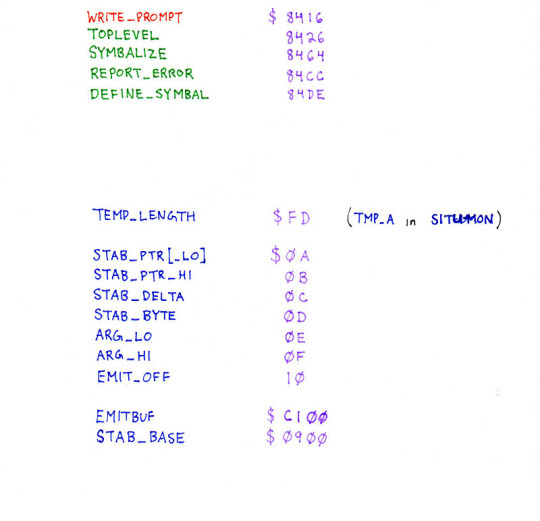 WRITE_PROMPT $ 8416
TOPLEVEL 8426
SYMBALIZE 8464
REPORT_ERROR 84CC
DEFINE_SYMBAL 84DE
TEMP_LENGTH $FD (TMP_A in SITUMON)
STAB_PTR[_LO] $0A
STAB_PTR_HI 0B
STAB_DELTA 0C
STAB_BYTE 0D
ARG_LO 0E
ARG_HI 0F
EMIT_OFF 10
EMITBUF $ C100
STAB_BASE $ 0900